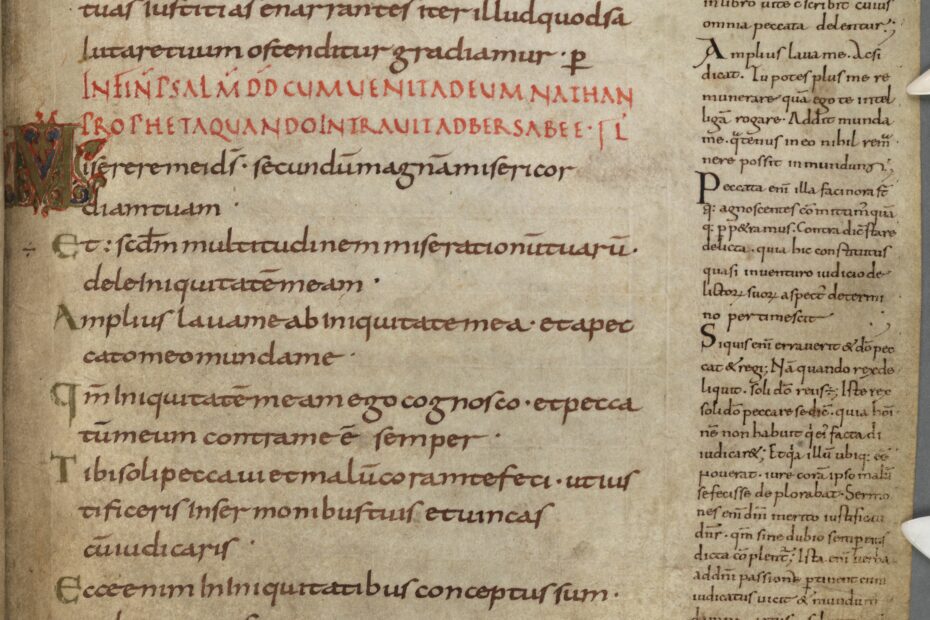 tuas Iustitias enarrantes iter illud quod sa
lutaretuum ostenditur gradiamur · p̱
IN FIN̄ PSALM̄ DD CUM VENIT AD EUM NATHAN
PROPHETA QUANDO INTRAVIT AD BERSABEE · L
Miserere mei ds̄ · secundū magnā misericor
diam tuam ·
Et : scdm̄ multitudinem miserationū tuarū ·
dele Iniquitatē meam ·
Amplius lava me ab Iniquitate mea · et apec
cato meo munda me ·
Qm̄ Iniquitatē meam ego cognosco · et pecca
tū meum contra me ē semper ·
Tibi soli peccavi et malū coram te feci · ut ius
tificeris In sermonibus tuis et vincas
cū iudicaris ·
Ecce enim In Iniquitatibus conceptus sum ·
omnia peccata delentur ;
Amplius lava me. Acsi
dicat. Tu potes plus me re
munerare quā ego te intel
ligā rogare · Addit munda
me · q̄tenus in eo nihil rem̄
nere possit in mundum ;
Peccata em̄ illa facinora st̄
q; agnoscentes comittim quā
q; ppēramus. Contra dic̄ stare
delicta · quia hic constitutus
quasi inventuro iudicio de
lictoꝝ suoꝝ aspectū determi
no pertimescit
Si quis em̄ erraverit & dō pec
cat & regi; Nā quando rex de
liquit · soli dō reus ē; Iste rex
soli dō peccare se dic̄ · quia hōi
nē non habuit q̇ ei facta di
iudicar&; Et q̇a illū ubiq; ēē
noverat · iure corā ipso malū
se fecisse deplorabat · Sermo
nes em̄ dn̄i merito iustifican
dn̄r · qm̄ sine dubio semp eius
dicta cōplent; Ista em̄ verba
ad dn̄i passionē ptinent cum
iudicatus vicit & mundum